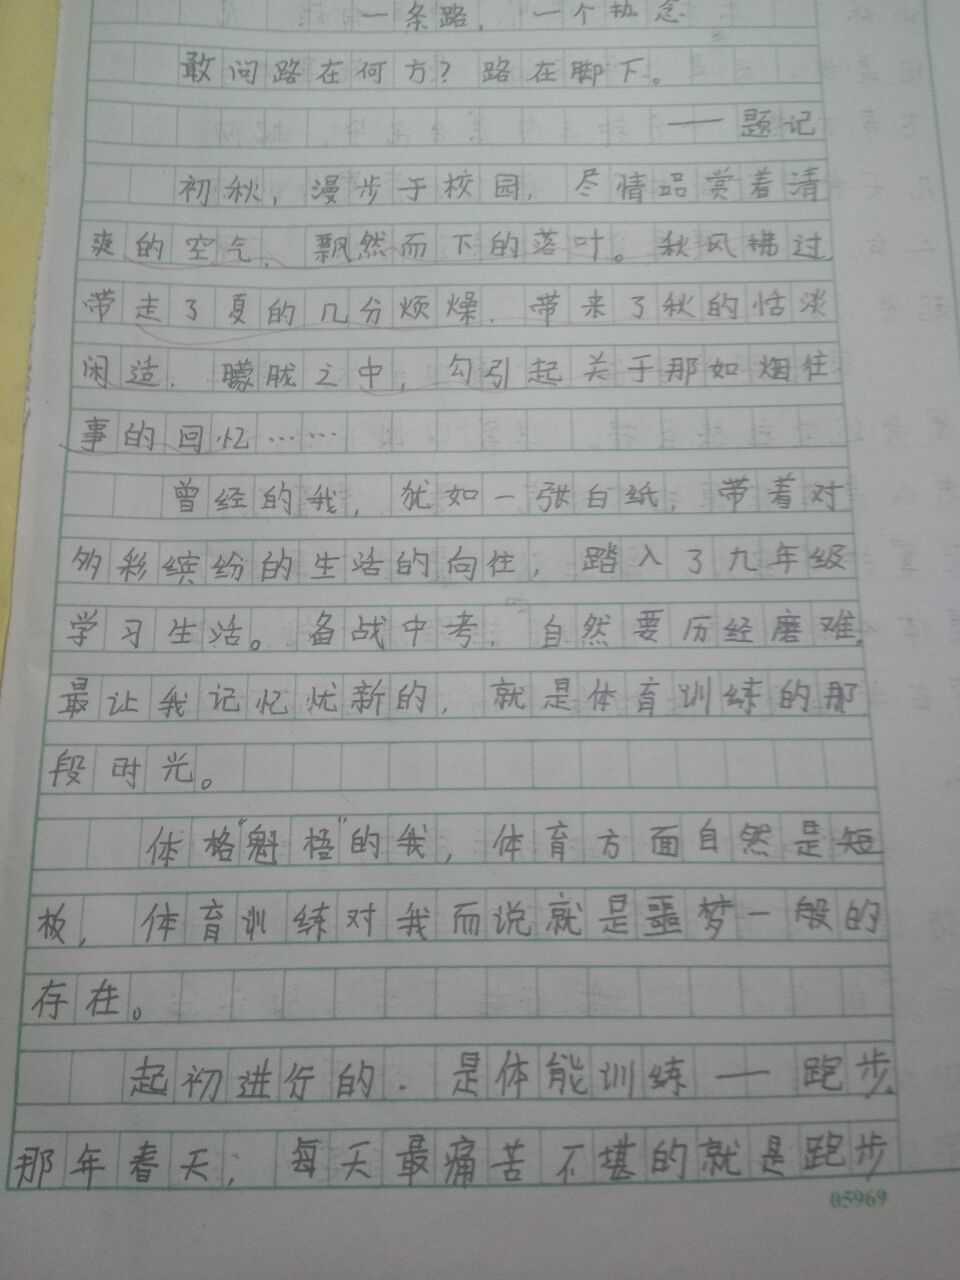 一条路，一个执念
敢问路在何方？路在脚下。
——题记
初秋，漫步于校园，尽情品赏着清
爽的空气，飘然而下的落叶。秋风拂过
带走了夏的几分烦燥，带来了秋的恬淡
闲适，朦胧之中，勾引起关于那如烟往
事的回忆……
曾经的我，犹如一张白纸，带着对
多彩缤纷的生活的向往，踏入了九年级
学习生活。备战中考，自然要历经磨难，
最让我记忆忧新的，就是体育训练的那
段时光。
体格“魁梧”的我，体育方面自然是短
板，体育训练对我而说就是噩梦一般的
存在。
起初进行的，是体能训练——跑步，
那年春天，每天最痛苦不堪的就是跑步
05969